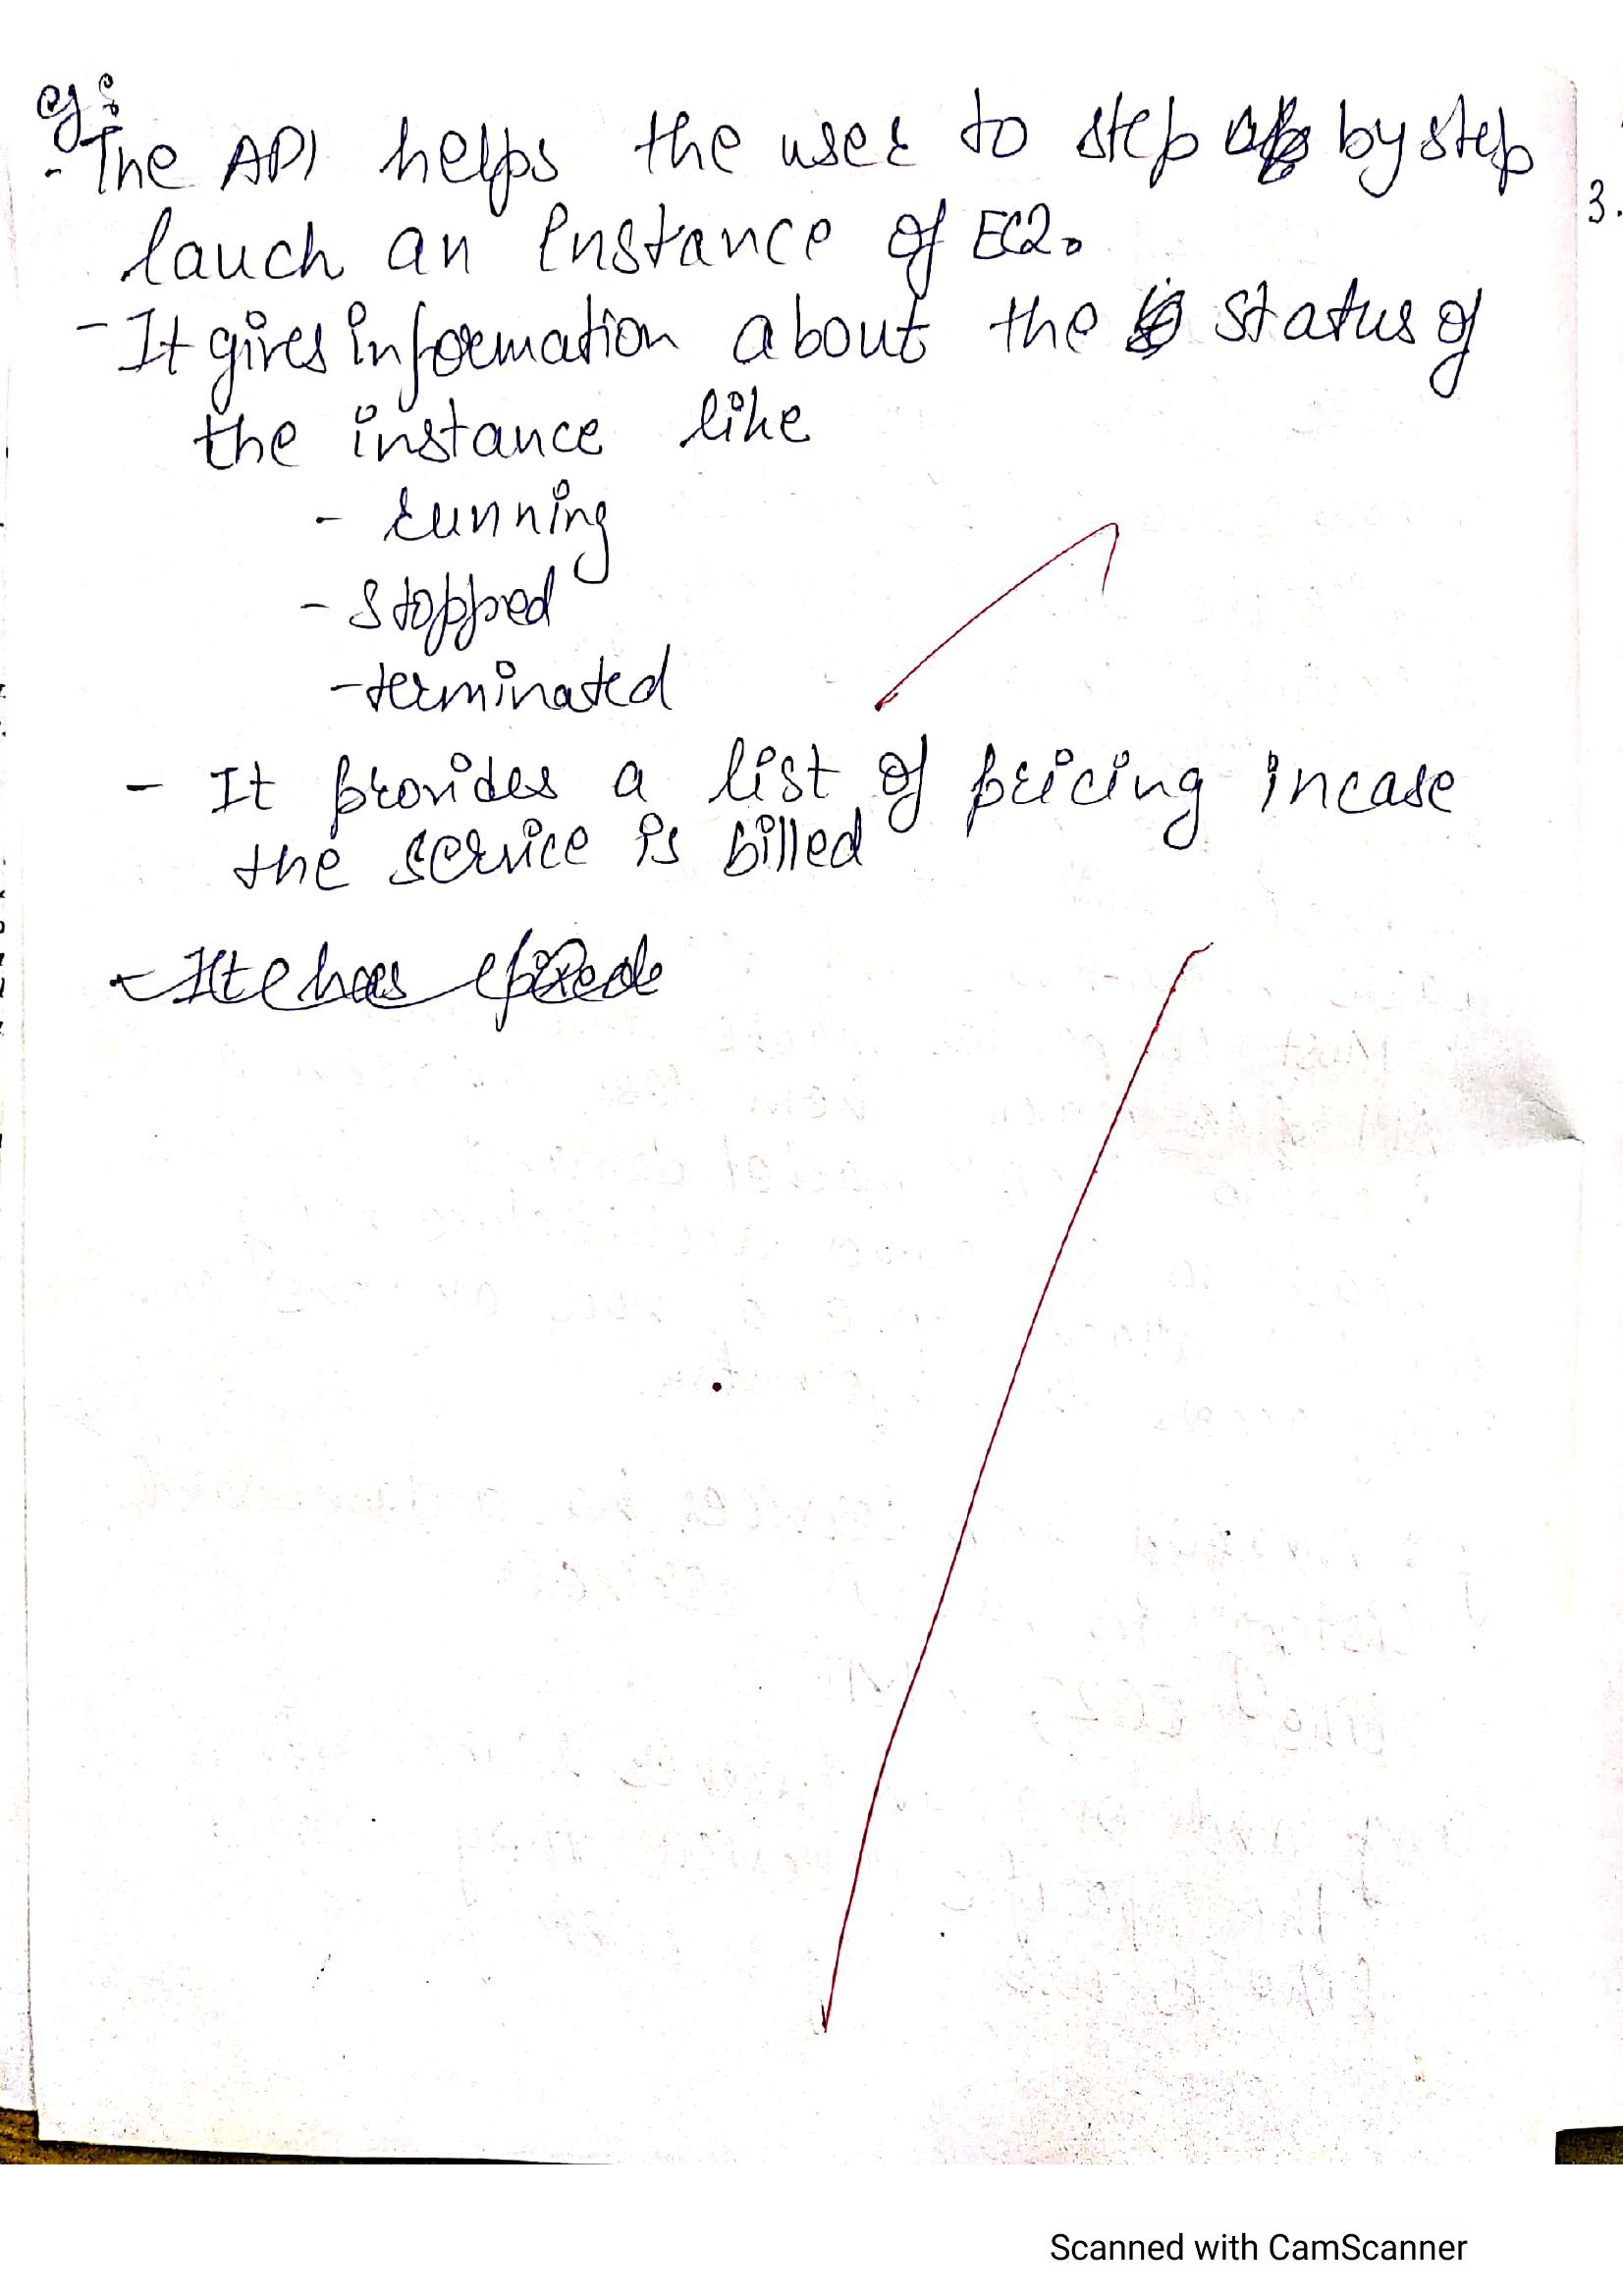 eg:
- The API helps the user to step by step
lauch an instance of EC2.
- It gives information about the status of
the instance like
- running
- stopped
- terminated
- It provides a list of pricing incase
the service is billed
- It has
3.
Scanned with CamScanner